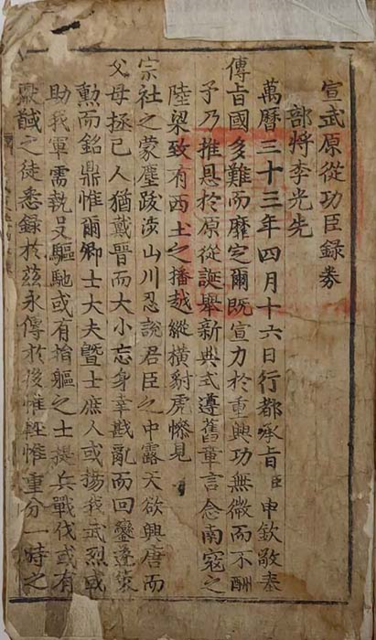 宣武原從功臣錄券
部將李光先
萬曆三十三年四月十六日行都承旨臣申欽敬奉
傳旨國多難而靡定爾既宣力於重興功無微而不酬
予乃推恩於原從誕舉新典式遵舊章言念南寇之
陸梁致有西土之播越縱橫豺虎慘見
宗社之蒙塵跋涉山川忍說君臣之中露天欲興唐而
父母拯己人猶戴晉而大小忘身幸戡亂而回鑾逢策
勳而銘鼎惟爾卿士大夫曁士庶人或揚我武烈或
助我軍需執殳驅馳或有捨軀之士提兵戰伐或有
獻馘之徒悉錄於茲永傳於後惟輕惟重分一時之